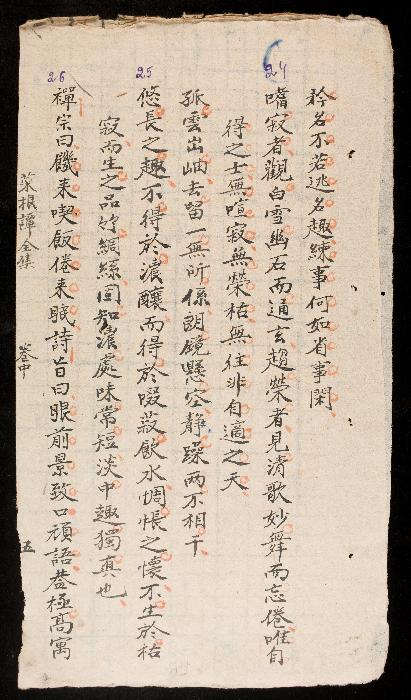 矜名不若逃名趣練事何如省事閑
24
嗜寂者觀白雪幽石而通玄趨榮者見清歌妙舞而忘倦唯自
得之士無喧寂無榮枯無往非自適之天
孤雲出岫去留一無所係朗鏡懸空静躁两不相干
25
悠長之趣不得於濃釀而得於啜菽飲水惆悵之懷不生於枯
寂而生之品竹綢絲固知濃處味常短淡中趣獨真也
26
禪宗曰饑来喫飯倦来眠詩旨曰眼前景致口頭語蓋極高寓
菜根譚全集 卷中 五